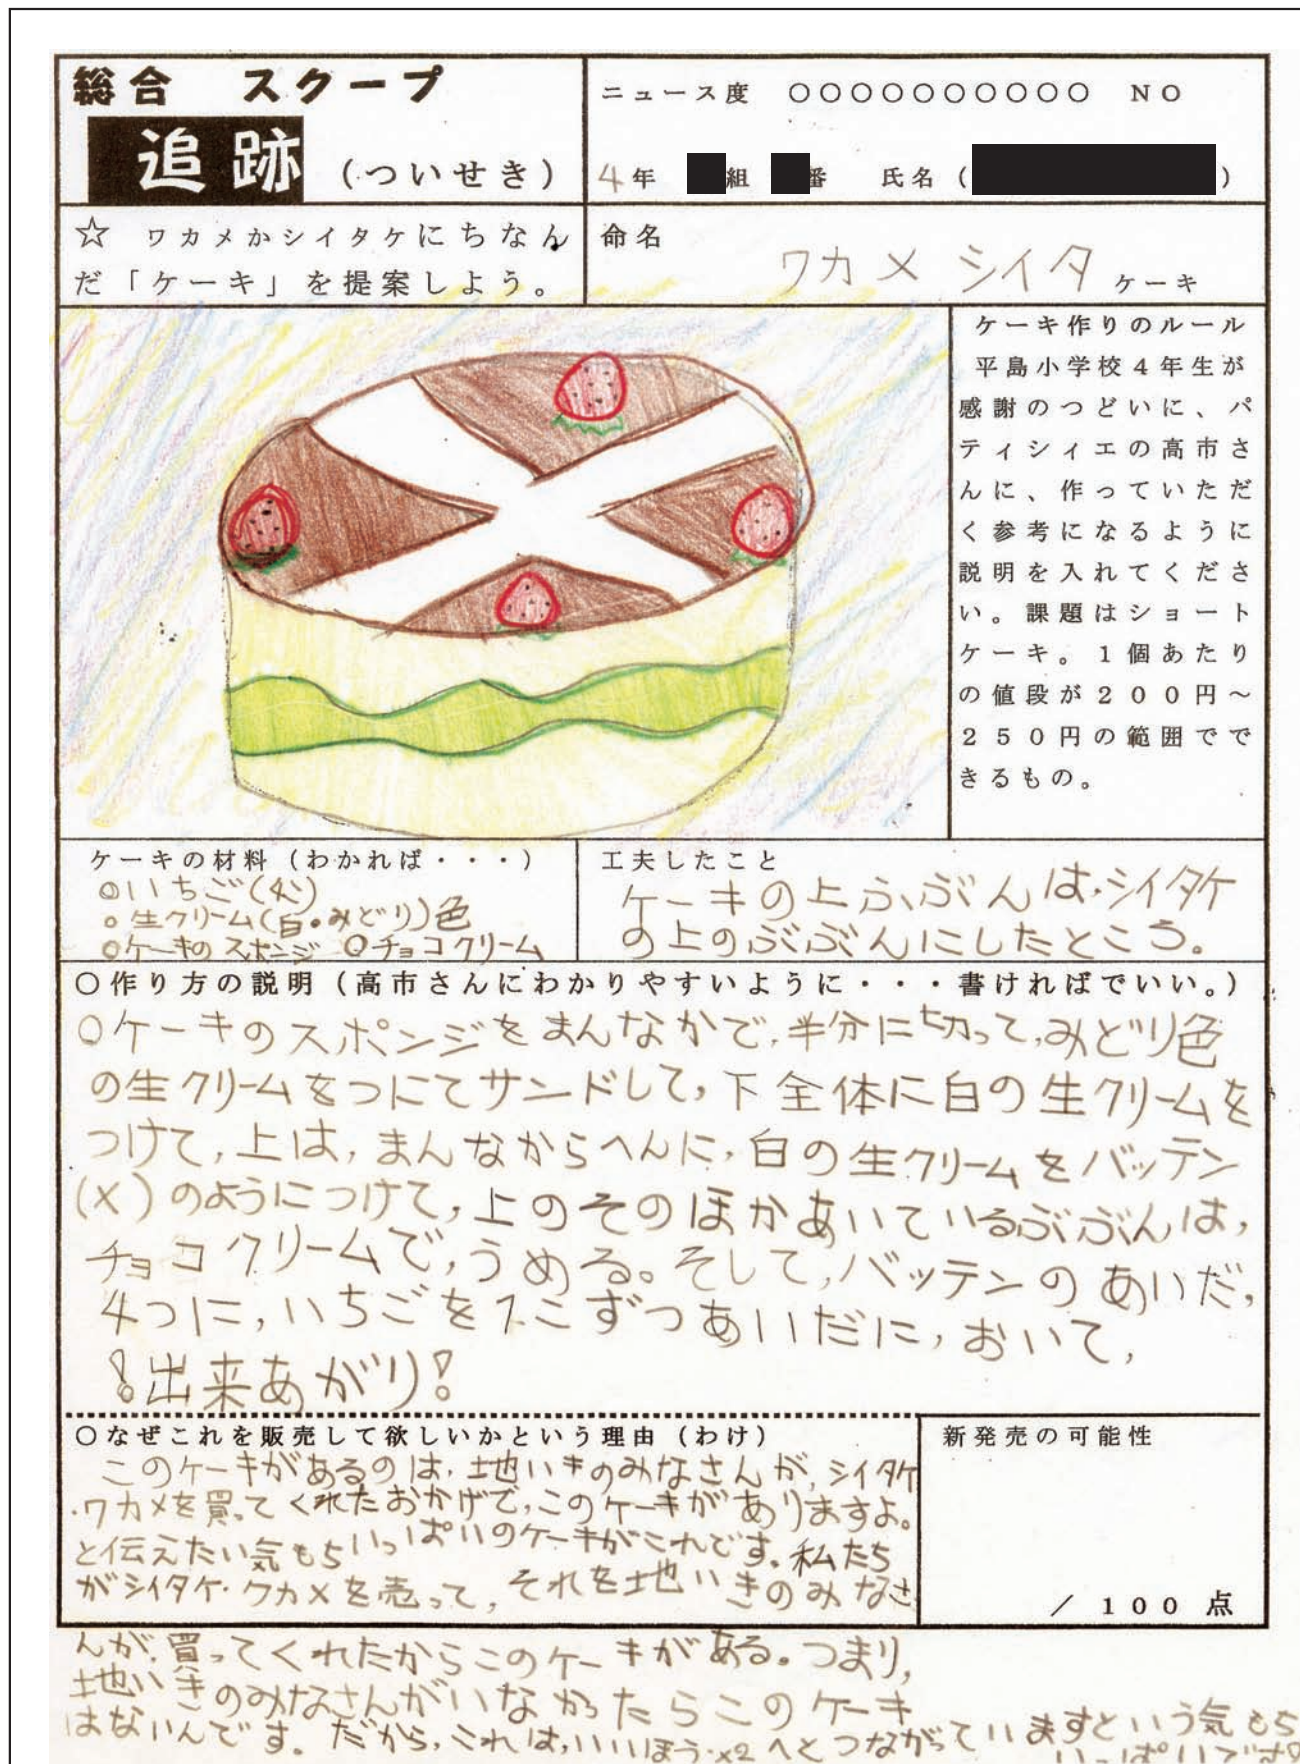 総合 スクープ
追跡 (ついせき)
ニュース度 ○○○○○○○○○○ NO
4年 組 番 氏名( )
☆ ワカメかシイタケにちなん
だ「ケーキ」を提案しよう。
命名
ワカメシイタケーキ
ケーキ作りのルール
平島小学校4年生が
感謝のつどいに、パ
ティシィエの高市さ
んに、作っていただ
く参考になるように
説明を入れてくださ
い。課題はショート
ケーキ。1個あたり
の値段が200円～
250円の範囲でで
きるもの。
ケーキの材料(わかれば・・・)
○いちご(公)
○生クリーム(白・みどり)色
○ケーキのスポンジ ○チョコクリーム
工夫したこと
ケーキの上ぶぶんは、シイタケ
の上のぶぶんにしたところ。
○作り方の説明(高市さんにわかりやすいように・・・書ければでいい。)
○ケーキのスポンジをまんなかで、半分に切って、みどり色
の生クリームをつにてサンドして、下全体に白の生クリームを
つけて、上は、まんなからへんに、白の生クリームをバッテン
(×)のようにつけて、上のそのほかあいているぶぶんは、
チョコクリームで、うめる。そして、バッテンのあいだ、
4つに、いちごを1こずつあいだに、おいて、
!出来あがり!
○なぜこれを販売して欲しいかという理由(わけ)
このケーキがあるのは、地いきのみなさんが、シイタケ
・ワカメを買ってくれたおかげで、このケーキがありますよ。
と伝えたい気もちいっぱいのケーキがこれです。私たち
がシイタケ・ワカメを売って、それを地いきのみなさ
んが、買ってくれたからこのケーキがある。つまり、
地いきのみなさんがいなかったらこのケーキ
はないんです。だから、これは、いいほう×2へとつながっていますという気もち
いっぱいです
新発売の可能性
/100点